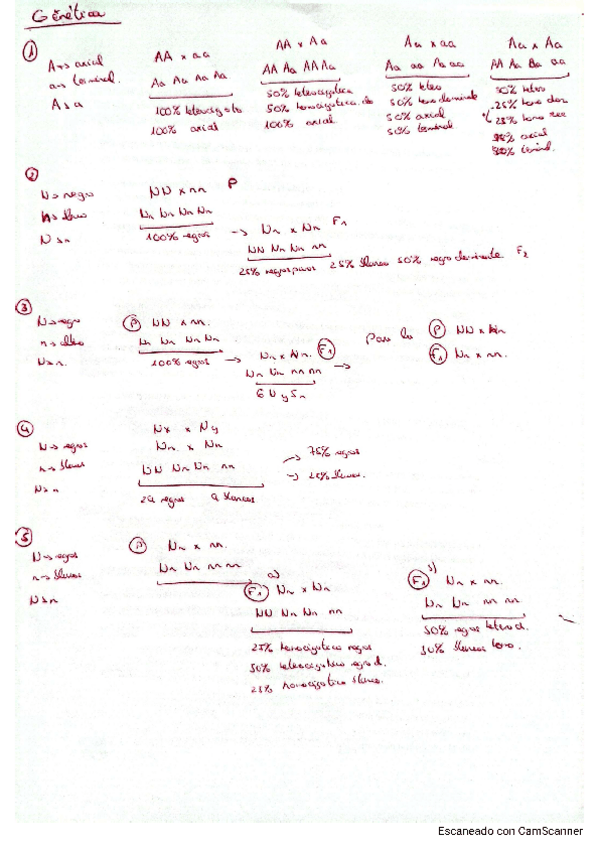 Genética
①
A → axial
a → terminal.
A > a
AA x aa
Aa Aa Aa Aa
100% heterocigoto
100% axial
AA x Aa
AA Aa AA Aa
50% heterocigótica
50% homocigótica do
100% axial.
Aa x aa
Aa aa Aa aa
50% hetero
50%
50% axial
50% terminal
Aa x Aa
AA Aa Aa aa
50% hetero
25% homo dom
25% homo rec
axial
②
N → negro
n →
N > n
NN x nn P
Nn Nn Nn Nn
100% negros
→ Nn x Nn F1
NN Nn Nn nn
25% negros puros 25% blancos 50% negro F2
③
N → negro
n →
N > n.
Ⓟ NN x nn.
Nn Nn Nn Nn
100% negros →
Nn x F1
Nn Nn nn nn →
6 N y 5 n
Ⓟ
F1 Nn x nn.
④
N → negros
n → blancos
N > n
Nn x Nn
NN Nn Nn nn
negros 9 blancos
→ 75% negros
→ 25% blancos.
⑤
N → negros
n → blancos
N > n
Ⓟ Nn x nn.
Nn Nn nn nn
a)
F1 Nn x Nn
NN Nn Nn nn
25% homocigótico negros
50% heterocigótico negro d.
25% homocigótico blanco.
F1 Nn x nn.
Nn Nn nn nn
50% negros hetero d.
50% blancos homo.
Escaneado con CamScanner